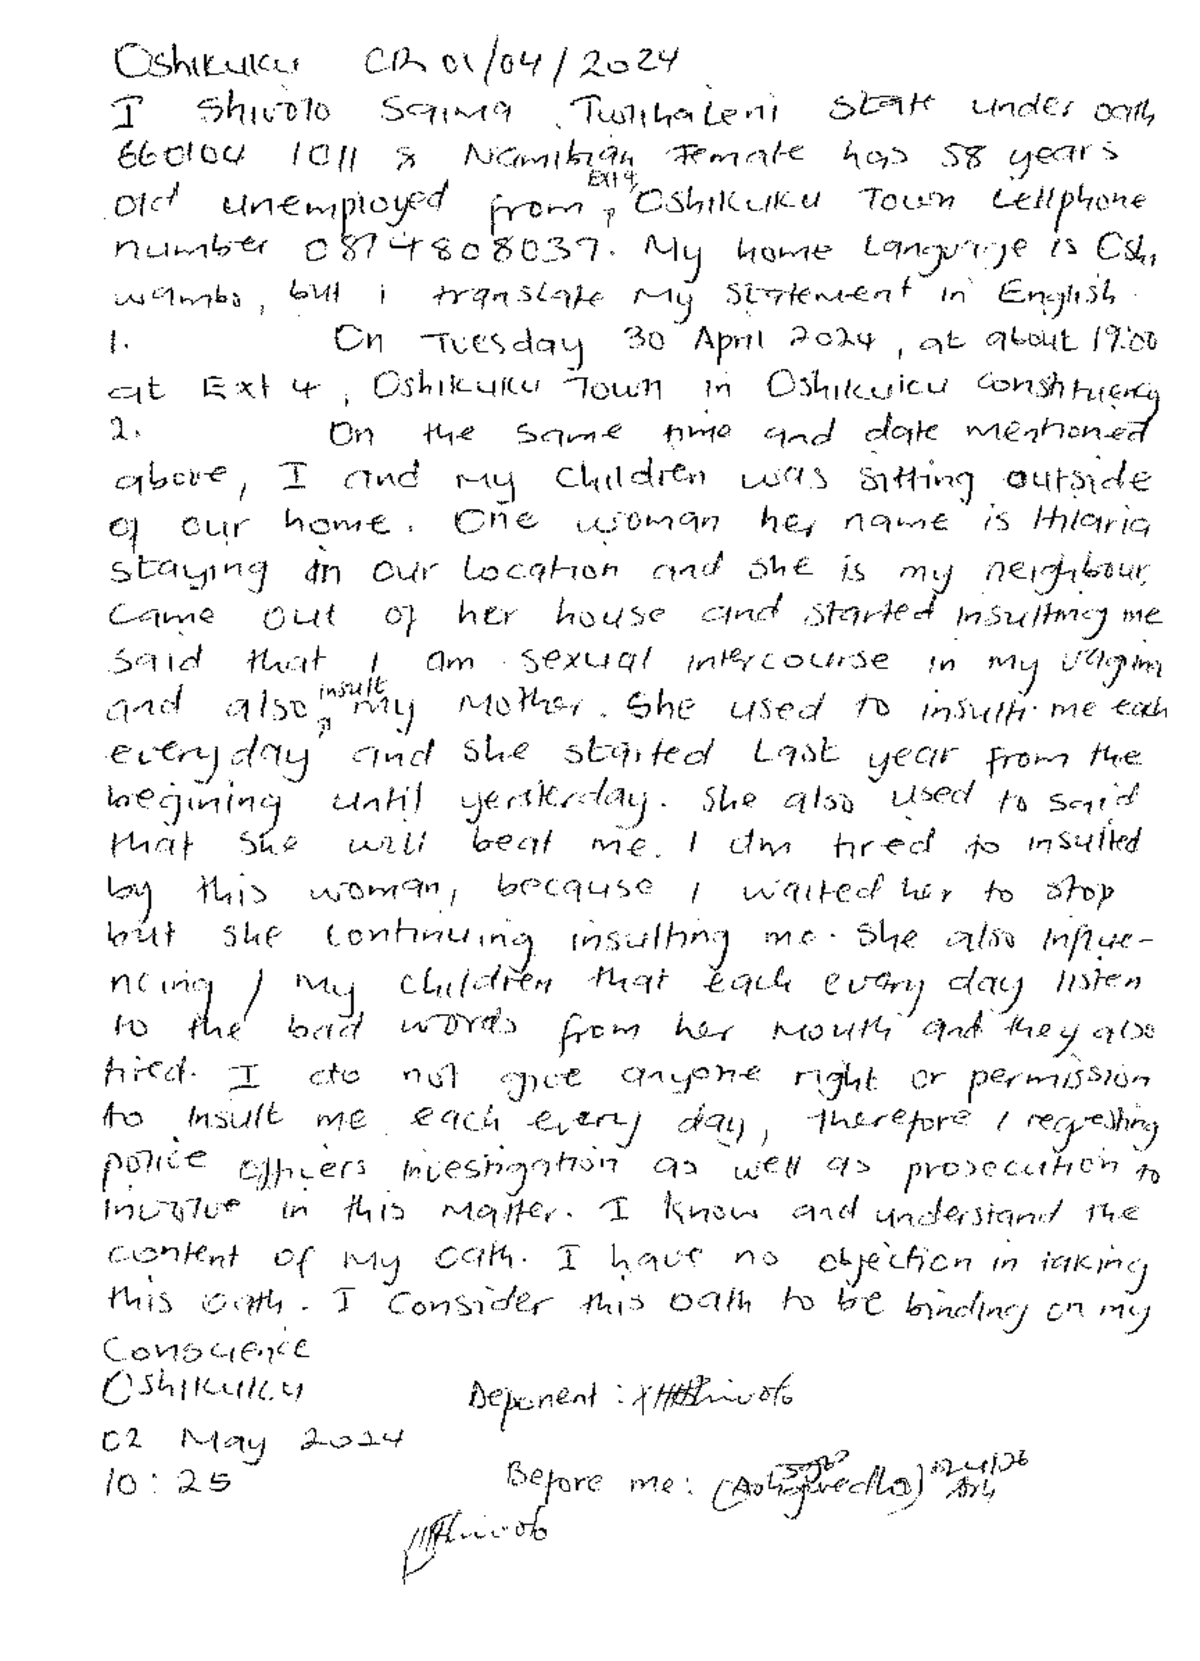 Oshikuku CR 01/04/2024
I Shivolo Saima Twihaleni state under oath
660104 1011 8 Namibian Female has 58 years
old unemployed from, Ext 4, Oshikuku Town Cellphone
number 0814808037. My home Language is Oshi
wambo, but i translate My statement in English.
1. On Tuesday 30 April 2024, at about 19:00
at Ext 4, Oshikuku Town in Oshikuku constituency
2. On the same time and date mentioned
above, I and my children was sitting outside
of our home. One woman her name is Hilaria
staying in our location and she is my neighbour,
came out of her house and started insulting me
said that I am sexual intercourse in my vagina
and also insult my Mother. She used to insult me each
every day and she started Last year from the
begining until yersterday. She also used to said
that she will beat me. I am tired to insulted
by this woman, because I waited her to stop
but she continuing insulting me. She also Influe-
ncing / my children that each every day listen
to the bad words from her mouth and they also
tired. I do not give anyone right or permission
to insult me each every day, therefore I requesting
police officers investigation as well as prosecution to
involve in this matter. I know and understand the
content of my oath. I have no objection in taking
this oath. I consider this oath to be binding on my
Conscience
Oshikuku Deponent: Shivolo
02 May 2024
10:25 Before me:
Shivolo